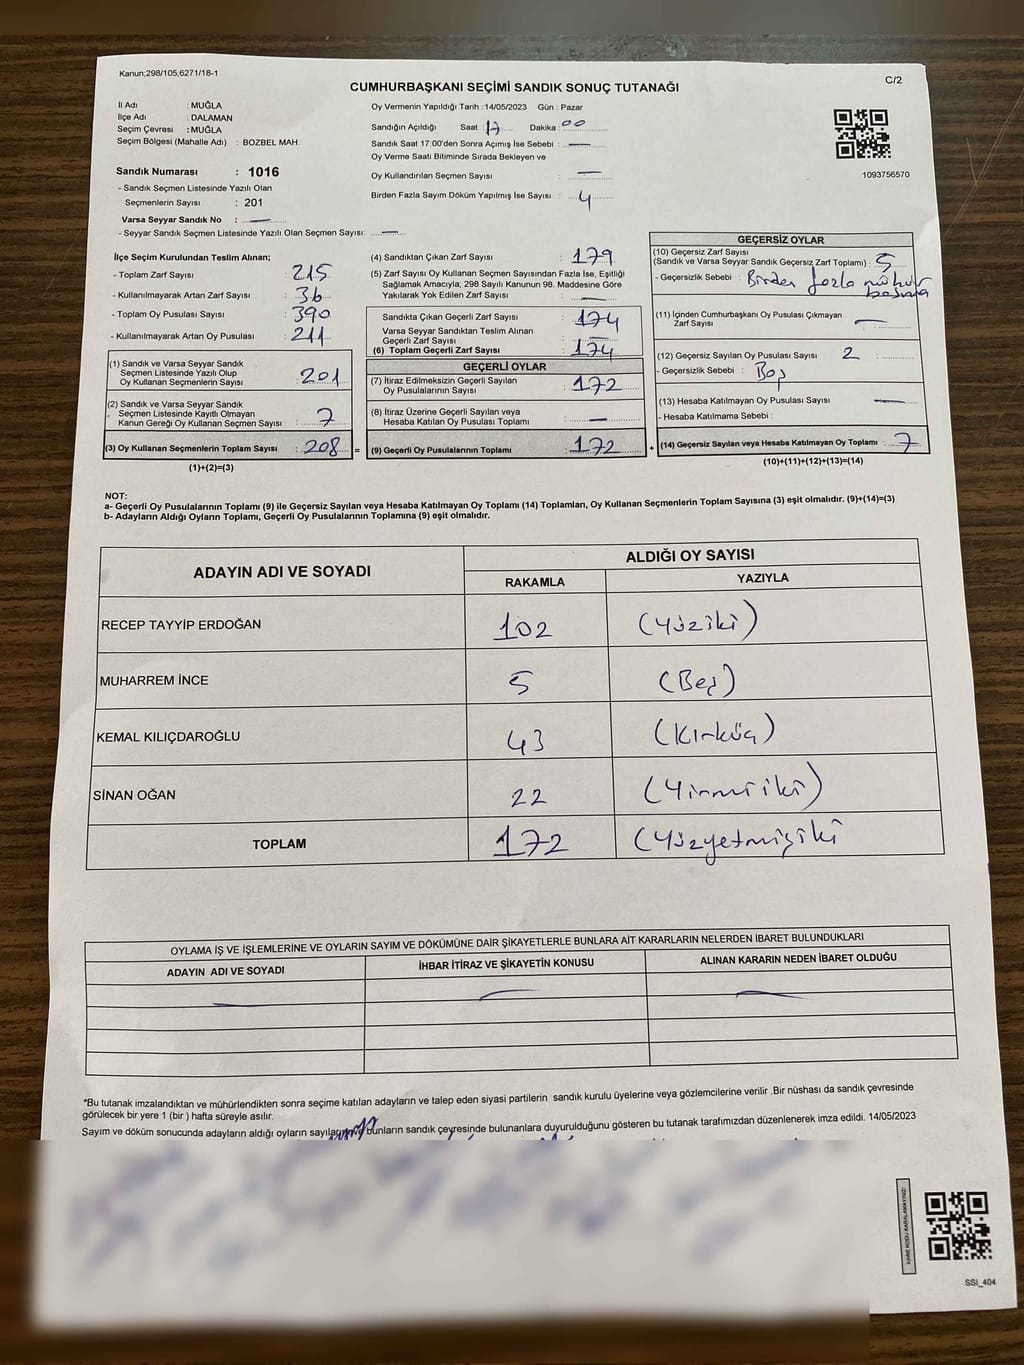 Kanun;298/105,6271/18-1
C/2
CUMHURBAŞKANI SEÇİMİ SANDIK SONUÇ TUTANAĞI
İl Adı : MUĞLA
İlçe Adı : DALAMAN
Seçim Çevresi : MUĞLA
Seçim Bölgesi (Mahalle Adı) : BOZBEL MAH.
Sandık Numarası : 1016
- Sandık Seçmen Listesinde Yazılı Olan
Seçmenlerin Sayısı : 201
Varsa Seyyar Sandık No : —
- Seyyar Sandık Seçmen Listesinde Yazılı Olan Seçmen Sayısı: —
Oy Vermenin Yapıldığı Tarih : 14/05/2023 Gün : Pazar
Sandığın Açıldığı Saat 17 Dakika : 00
Sandık Saat 17:00'den Sonra Açımış İse Sebebi : —
Oy Verme Saati Bitiminde Sırada Bekleyen ve
Oy Kullandırılan Seçmen Sayısı : —
Birden Fazla Sayım Döküm Yapılmış İse Sayısı : 4
1093756570
İlçe Seçim Kurulundan Teslim Alınan;
- Toplam Zarf Sayısı : 215
- Kullanılmayarak Artan Zarf Sayısı : 36
- Toplam Oy Pusulası Sayısı : 390
- Kullanılmayarak Artan Oy Pusulası : 211
(1) Sandık ve Varsa Seyyar Sandık
Seçmen Listesinde Yazılı Olup
Oy Kullanan Seçmenlerin Sayısı : 201
(2) Sandık ve Varsa Seyyar Sandık
Seçmen Listesinde Kayıtlı Olmayan
Kanun Gereği Oy Kullanan Seçmen Sayısı : 7
(3) Oy Kullanan Seçmenlerin Toplam Sayısı : 208
(1)+(2)=(3)
=
(4) Sandıktan Çıkan Zarf Sayısı : 179
(5) Zarf Sayısı Oy Kullanan Seçmen Sayısından Fazla İse, Eşitliği
Sağlamak Amacıyla; 298 Sayılı Kanunun 98. Maddesine Göre
Yakılarak Yok Edilen Zarf Sayısı : —
Sandıkta Çıkan Geçerli Zarf Sayısı : 174
Varsa Seyyar Sandıktan Teslim Alınan
Geçerli Zarf Sayısı : —
(6) Toplam Geçerli Zarf Sayısı : 174
GEÇERLİ OYLAR
(7) İtiraz Edilmeksizin Geçerli Sayılan
Oy Pusulalarının Sayısı : 172
(8) İtiraz Üzerine Geçerli Sayılan veya
Hesaba Katılan Oy Pusulaları Toplamı : —
(9) Geçerli Oy Pusulalarının Toplamı : 172
+
GEÇERSİZ OYLAR
(10) Geçersiz Zarf Sayısı
(Sandık ve Varsa Seyyar Sandık Geçersiz Zarf Toplamı) : 5
- Geçersizlik Sebebi : Birden fazla mühür
basma
(11) İçinden Cumhurbaşkanı Oy Pusulası Çıkmayan
Zarf Sayısı : —
(12) Geçersiz Sayılan Oy Pusulası Sayısı : 2
- Geçersizlik Sebebi : Boş
(13) Hesaba Katılmayan Oy Pusulası Sayısı : —
- Hesaba Katılmama Sebebi :
(14) Geçersiz Sayılan veya Hesaba Katılmayan Oy Toplamı : 7
(10)+(11)+(12)+(13)=(14)
NOT:
a- Geçerli Oy Pusulalarının Toplamı (9) ile Geçersiz Sayılan veya Hesaba Katılmayan Oy Toplamı (14) Toplamları, Oy Kullanan Seçmenlerin Toplam Sayısına (3) eşit olmalıdır. (9)+(14)=(3)
b- Adayların Aldığı Oyların Toplamı, Geçerli Oy Pusulalarının Toplamına (9) eşit olmalıdır.
ADAYIN ADI VE SOYADI
ALDIĞI OY SAYISI
RAKAMLA YAZIYLA
RECEP TAYYİP ERDOĞAN 102 (Yüziki)
MUHARREM İNCE 5 (Beş)
KEMAL KILIÇDAROĞLU 43 (Kırküç)
SİNAN OĞAN 22 (Yirmiiki)
TOPLAM 172 (Yüzyetmişiki
OYLAMA İŞ VE İŞLEMLERİNE VE OYLARIN SAYIM VE DÖKÜMÜNE DAİR ŞİKAYETLERLE BUNLARA AİT KARARLARIN NELERDEN İBARET BULUNDUKLARI
ADAYIN ADI VE SOYADI İHBAR İTİRAZ VE ŞİKAYETİN KONUSU ALINAN KARARIN NEDEN İBARET OLDUĞU
— — —
*Bu tutanak imzalandıktan ve mühürlendikten sonra seçime katılan adayların ve talep eden siyasi partilerin sandık kurulu üyelerine veya gözlemcilerine verilir .Bir nüshası da sandık çevresinde
görülecek bir yere 1 (bir ) hafta süreyle asılır.
Sayım ve döküm sonucunda adayların aldığı oyların sayılarını bunların sandık çevresinde bulunanlara duyurulduğunu gösteren bu tutanak tarafımızdan düzenlenerek imza edildi. 14/05/2023
KARE KODU KARALAMAYINIZ!
SSI_404